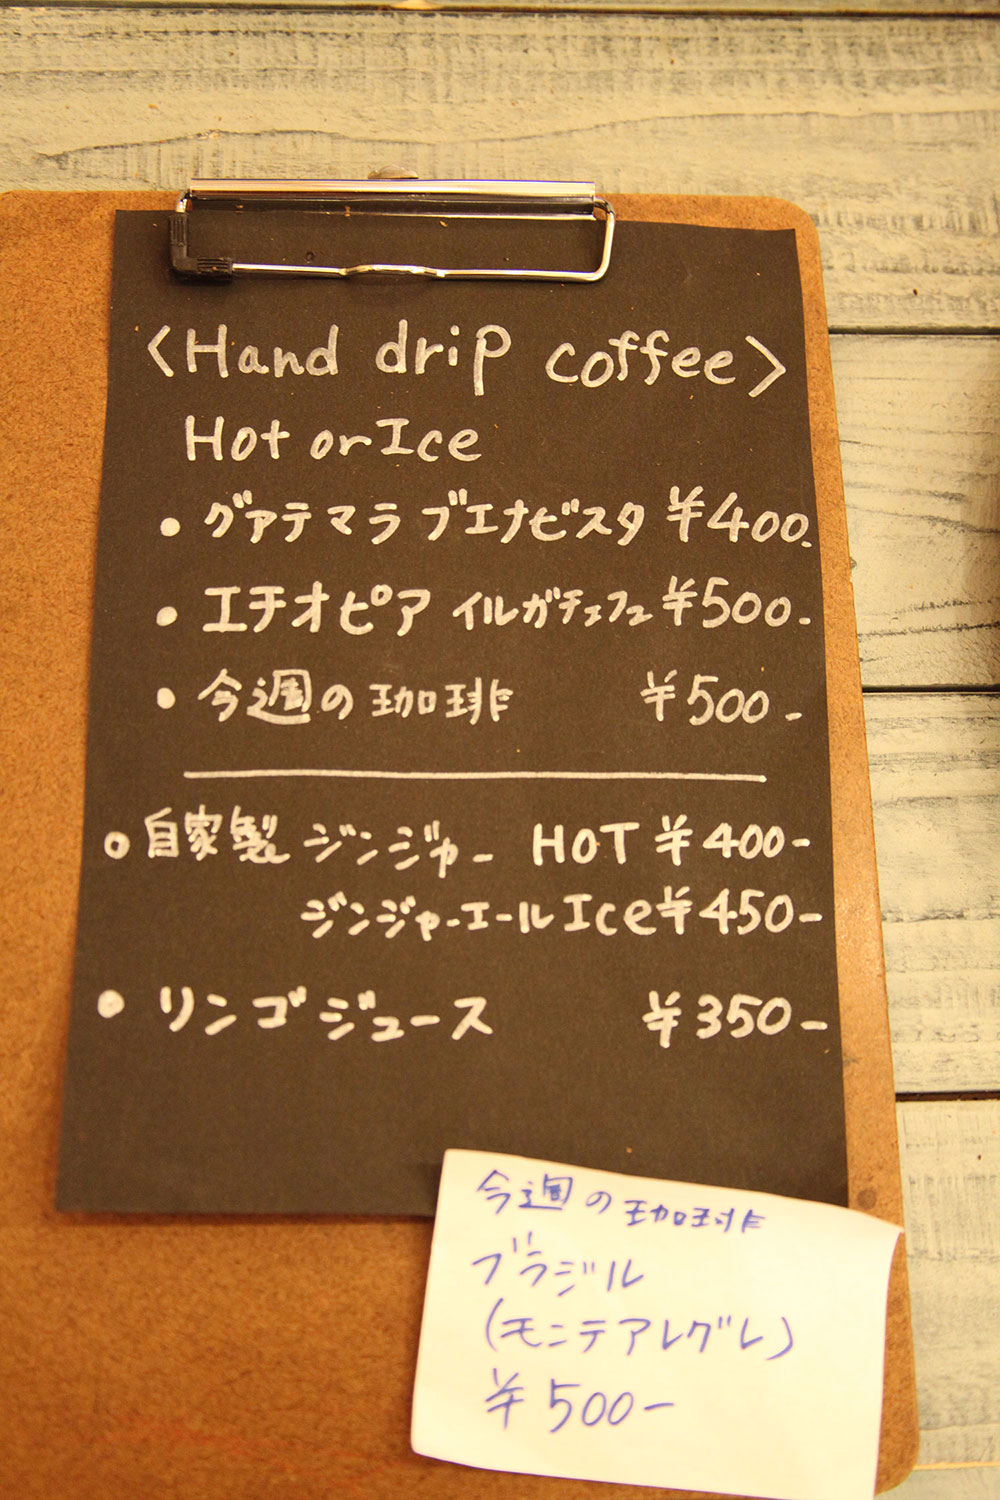 <Hand drip coffee>
Hot or Ice
・グァテマラ ブエナビスタ ¥400.
・エチオピア イルガチェフェ ¥500-
・今週の珈琲 ¥500-
○自家製 ジンジャー HOT ¥400-
ジンジャーエール Ice ¥450-
・リンゴジュース ¥350-
今週の珈琲
ブラジル
(モンテアレグレ)
¥500-